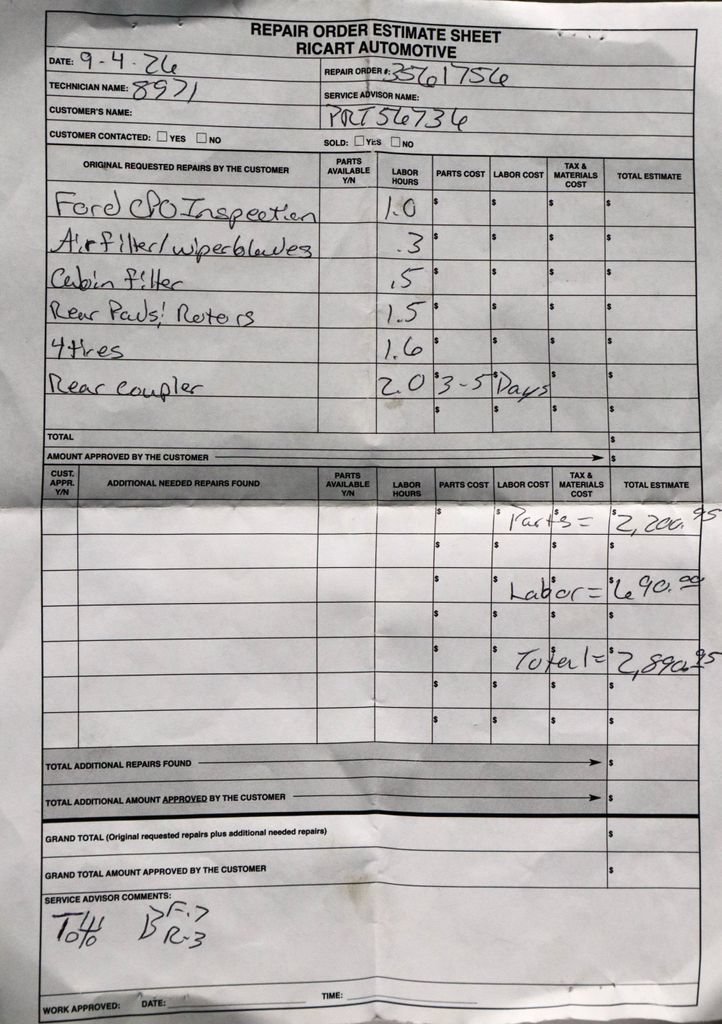 REPAIR ORDER ESTIMATE SHEET
RICART AUTOMOTIVE
DATE: 9-4-26 REPAIR ORDER #: 3561756
TECHNICIAN NAME: 8971 SERVICE ADVISOR NAME:
CUSTOMER'S NAME: PRT56736
CUSTOMER CONTACTED: YES NO SOLD: YES NO
ORIGINAL REQUESTED REPAIRS BY THE CUSTOMER PARTS AVAILABLE Y/N LABOR HOURS PARTS COST LABOR COST TAX & MATERIALS COST TOTAL ESTIMATE
Ford CPO Inspection 1.0 $ $ $ $
Air filter/wiperblades .3 $ $ $ $
Cabin filter .5 $ $ $ $
Rear Pads! Rotors 1.5 $ $ $ $
4 tires 1.6 $ $ $ $
Rear coupler 2.0 $ 3-5 $ Days $ $
$ $ $ $
TOTAL $
AMOUNT APPROVED BY THE CUSTOMER $
CUST. APPR. Y/N ADDITIONAL NEEDED REPAIRS FOUND PARTS AVAILABLE Y/N LABOR HOURS PARTS COST LABOR COST TAX & MATERIALS COST TOTAL ESTIMATE
$ $ Parts = $ $2,200.95
$ $ $ $
$ $ Labor = $ $690.00
$ $ $ $
$ $ Total = $ $2,890.95
$ $ $ $
$ $ $ $
TOTAL ADDITIONAL REPAIRS FOUND $
TOTAL ADDITIONAL AMOUNT APPROVED BY THE CUSTOMER $
GRAND TOTAL (Original requested repairs plus additional needed repairs) $
GRAND TOTAL AMOUNT APPROVED BY THE CUSTOMER $
SERVICE ADVISOR COMMENTS:
B F-7
R-3
WORK APPROVED: DATE: TIME: